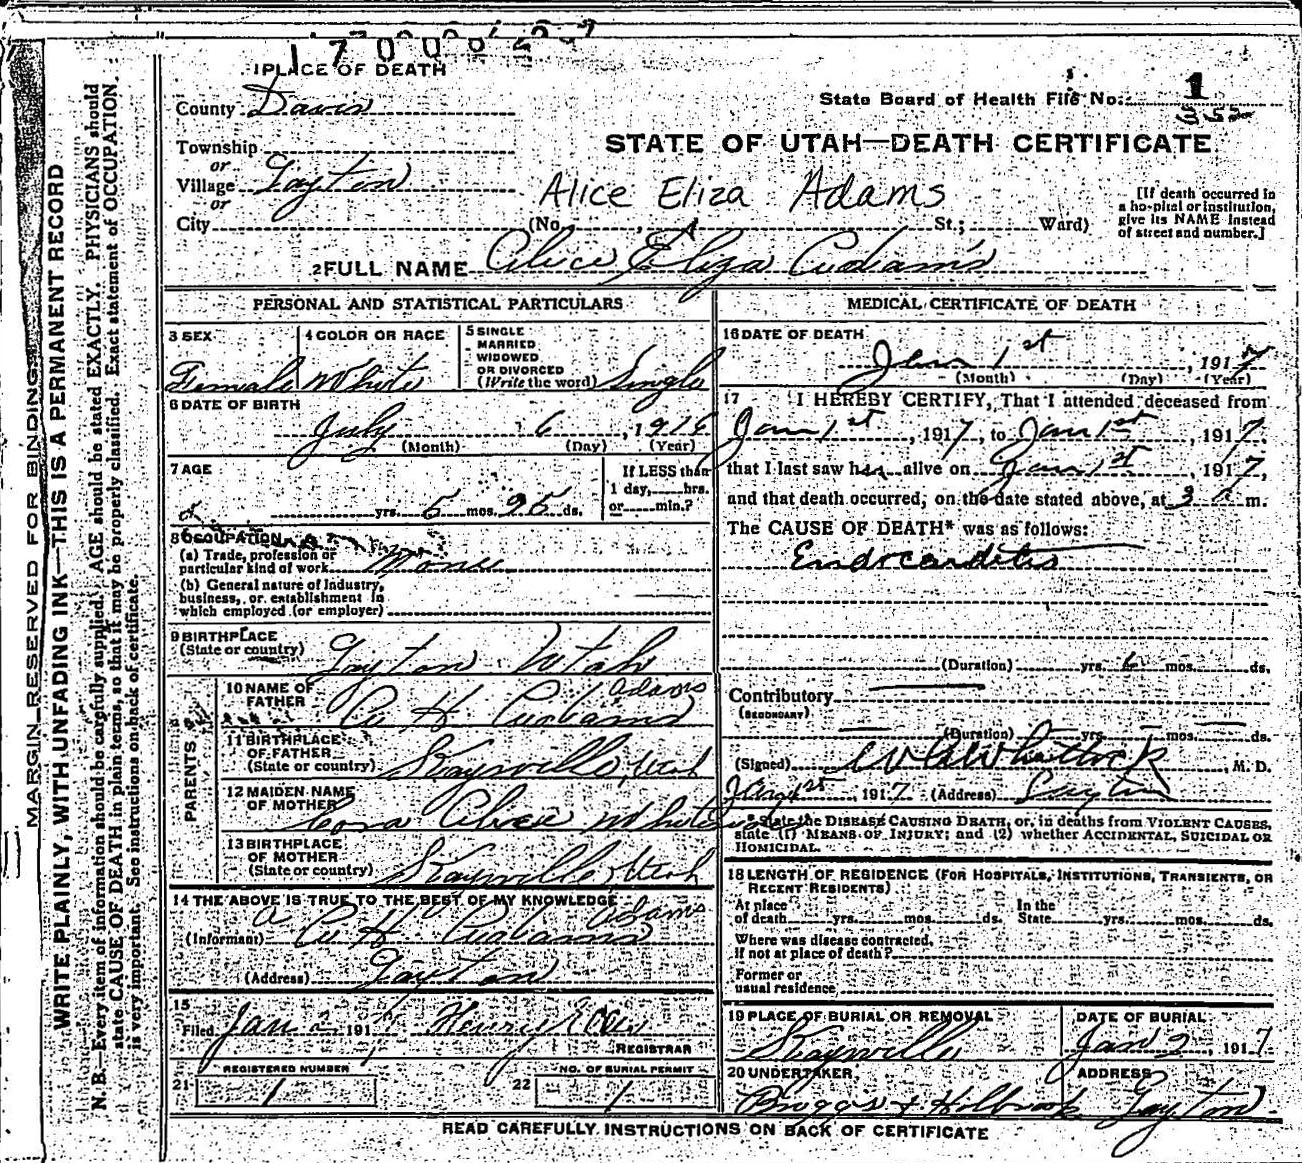 1PLACE OF DEATH
County Davis
State Board of Health File No. 1
Township
or
STATE OF UTAH—DEATH CERTIFICATE
Village Layton
or
Alice Eliza Adams
[If death occurred in
a hospital or institution,
give its NAME instead
of street and number.]
City (No. St.; Ward)
2FULL NAME Alice Eliza Adams
PERSONAL AND STATISTICAL PARTICULARS
3 SEX
Female
4 COLOR OR RACE
White
5 SINGLE
MARRIED
WIDOWED
OR DIVORCED
(Write the word) Single
6 DATE OF BIRTH
July 6, 1916
(Month) (Day) (Year)
7 AGE
yrs. 5 mos. 25 ds.
If LESS than
1 day, hrs.
or min.?
8 OCCUPATION
(a) Trade, profession or
particular kind of work None
(b) General nature of Industry,
business, or establishment in
which employed (or employer)
9 BIRTHPLACE
(State or country) Layton Utah
PARENTS
10 NAME OF
FATHER
Adams
11 BIRTHPLACE
OF FATHER
(State or country) Kaysville, Utah
12 MAIDEN NAME
OF MOTHER
Cora
13 BIRTHPLACE
OF MOTHER
(State or country) Kaysville Utah
14 THE ABOVE IS TRUE TO THE BEST OF MY KNOWLEDGE
a Adams
(Informant) H
(Address) Layton
15
Filed Jan 2 191 Henry
REGISTRAR
REGISTERED NUMBER
21 1
NO. OF BURIAL PERMIT
22 1
MEDICAL CERTIFICATE OF DEATH
16 DATE OF DEATH
Jan 1st, 1917
(Month) (Day) (Year)
17 I HEREBY CERTIFY, That I attended deceased from
Jan 1st, 1917, to Jan 1st, 1917.
that I last saw her alive on Jan 1st, 1917,
and that death occurred, on the date stated above, at 3 m.
The CAUSE OF DEATH* was as follows:
Endocarditis
(Duration) yrs. 6 mos. ds.
Contributory
(SECONDARY)
(Duration) yrs. mos. ds.
(Signed) Whitlock, M. D.
Jan 1st, 1917. (Address) Layton
* State the DISEASE CAUSING DEATH, or, in deaths from VIOLENT CAUSES,
state (1) MEANS OF INJURY; and (2) whether ACCIDENTAL, SUICIDAL OR
HOMICIDAL.
18 LENGTH OF RESIDENCE (FOR HOSPITALS, INSTITUTIONS, TRANSIENTS, OR
RECENT RESIDENTS)
At place
of death yrs. mos. ds.
In the
State yrs. mos. ds.
Where was disease contracted,
If not at place of death?
Former or
usual residence
19 PLACE OF BURIAL OR REMOVAL
Kaysville
DATE OF BURIAL
Jan 2, 1917
20 UNDERTAKER
Briggs & Holbrook
ADDRESS
Layton
READ CAREFULLY INSTRUCTIONS ON BACK OF CERTIFICATE
MARGIN RESERVED FOR BINDING
WRITE PLAINLY, WITH UNFADING INK—THIS IS A PERMANENT RECORD
N. B.—Every item of information should be carefully supplied. AGE should be stated EXACTLY. PHYSICIANS should
state CAUSE OF DEATH in plain terms, so that it may be properly classified. Exact statement of OCCUPATION
is very important. See instructions on back of certificate.